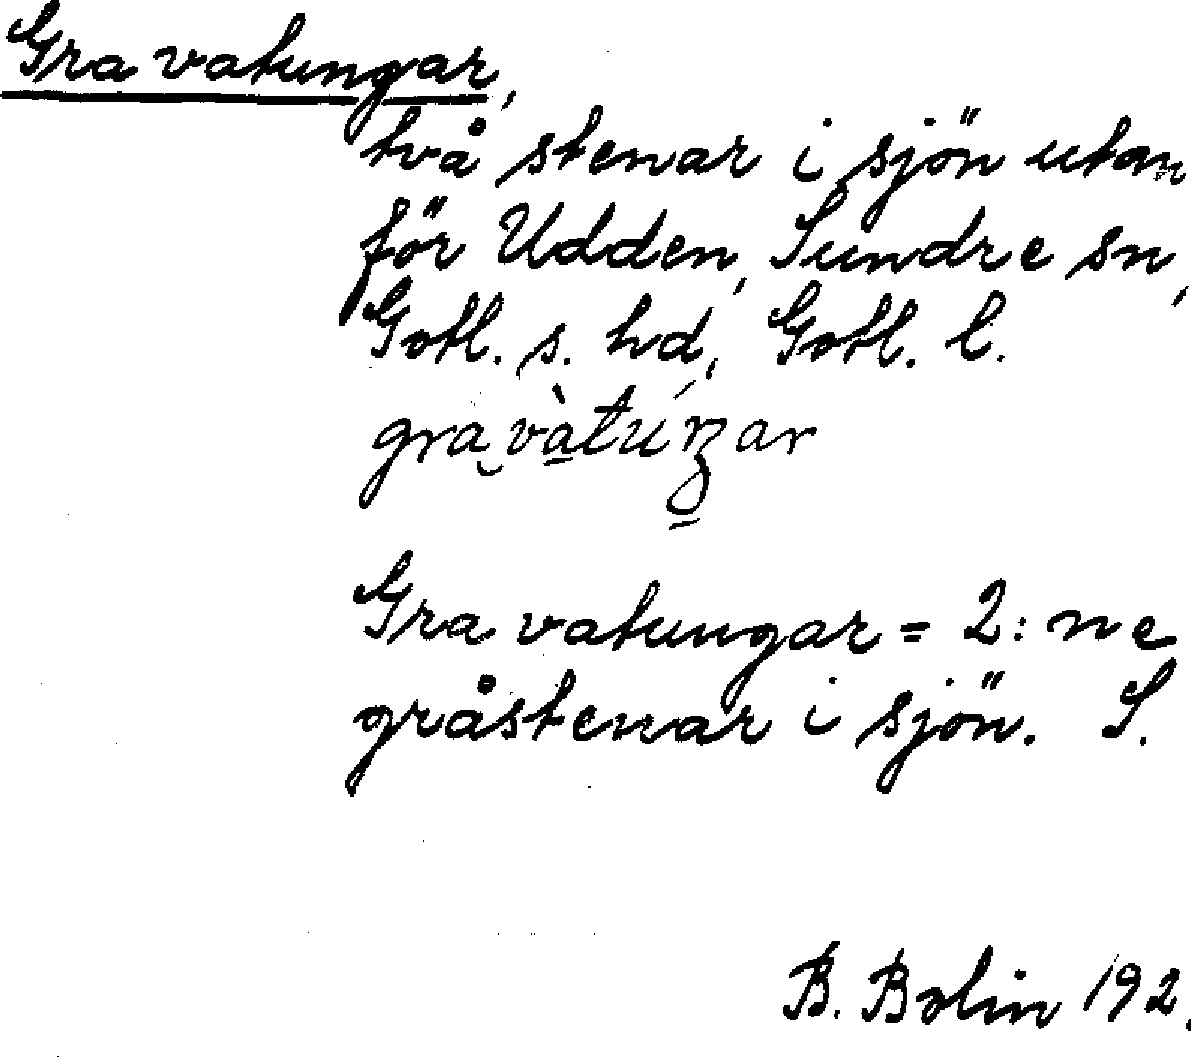 Gravatungar,
två stenar i sjön utan
för Udden, Sundre sn,
Gotl. s. hd, Gotl. l.
Gravatungar = 2:ne
gråstenar i sjön. S.
B. Bolin 192